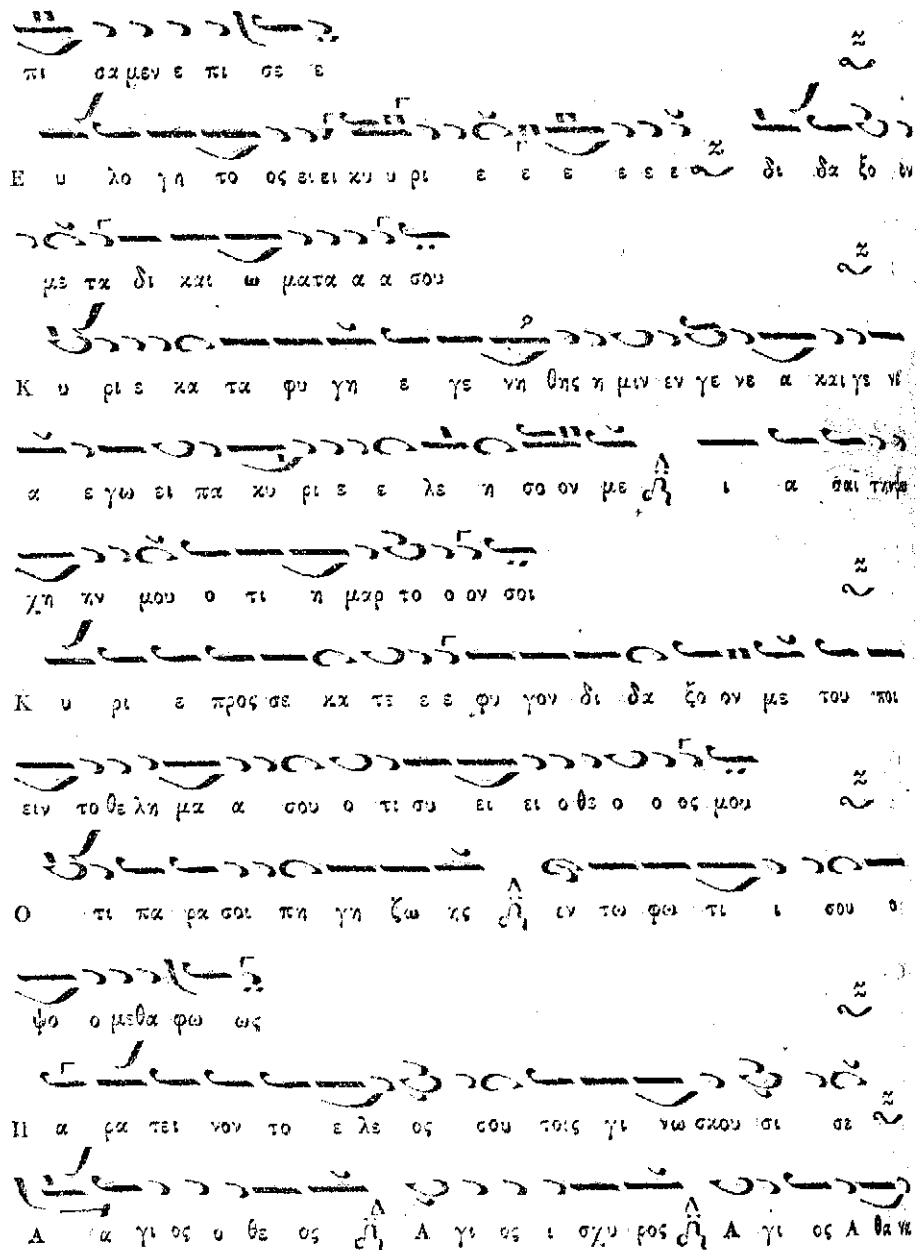 πι σα μεν ε πι σε ε
Ε υ λο γη το ος ει ει κυ υ ρι ε ε ε ε ε ε δι δα ξο ον
με τα δι και ω ματα α α σου
Κ υ ρι ε κα τα φυ γη ε γε νη θης η μιν εν γε νε α και γε νε
α ε γω ει πα κυ ρι ε ε λε η σο ον με ι α σαι την ψυ
χη ην μου ο τι η μαρ το ο ον σοι
Κ υ ρι ε προς σε κα τε ε ε φυ γον δι δα ξο ον με του ποι
ειν το θε λη μα α σου ο τι συ ει ει ο θε ο ο ος μου
Ο τι πα ρα σοι πη γη ζω ης εν τω φω τι ι σου ο
ψο ο μεθα φω ως
Π α ρα τει νον το ε λε ος σου τοις γι νω σκου σι σε
Α α γι ος ο θε ος Α γι ος ι σχυ ρος Α γι ος Α θα να